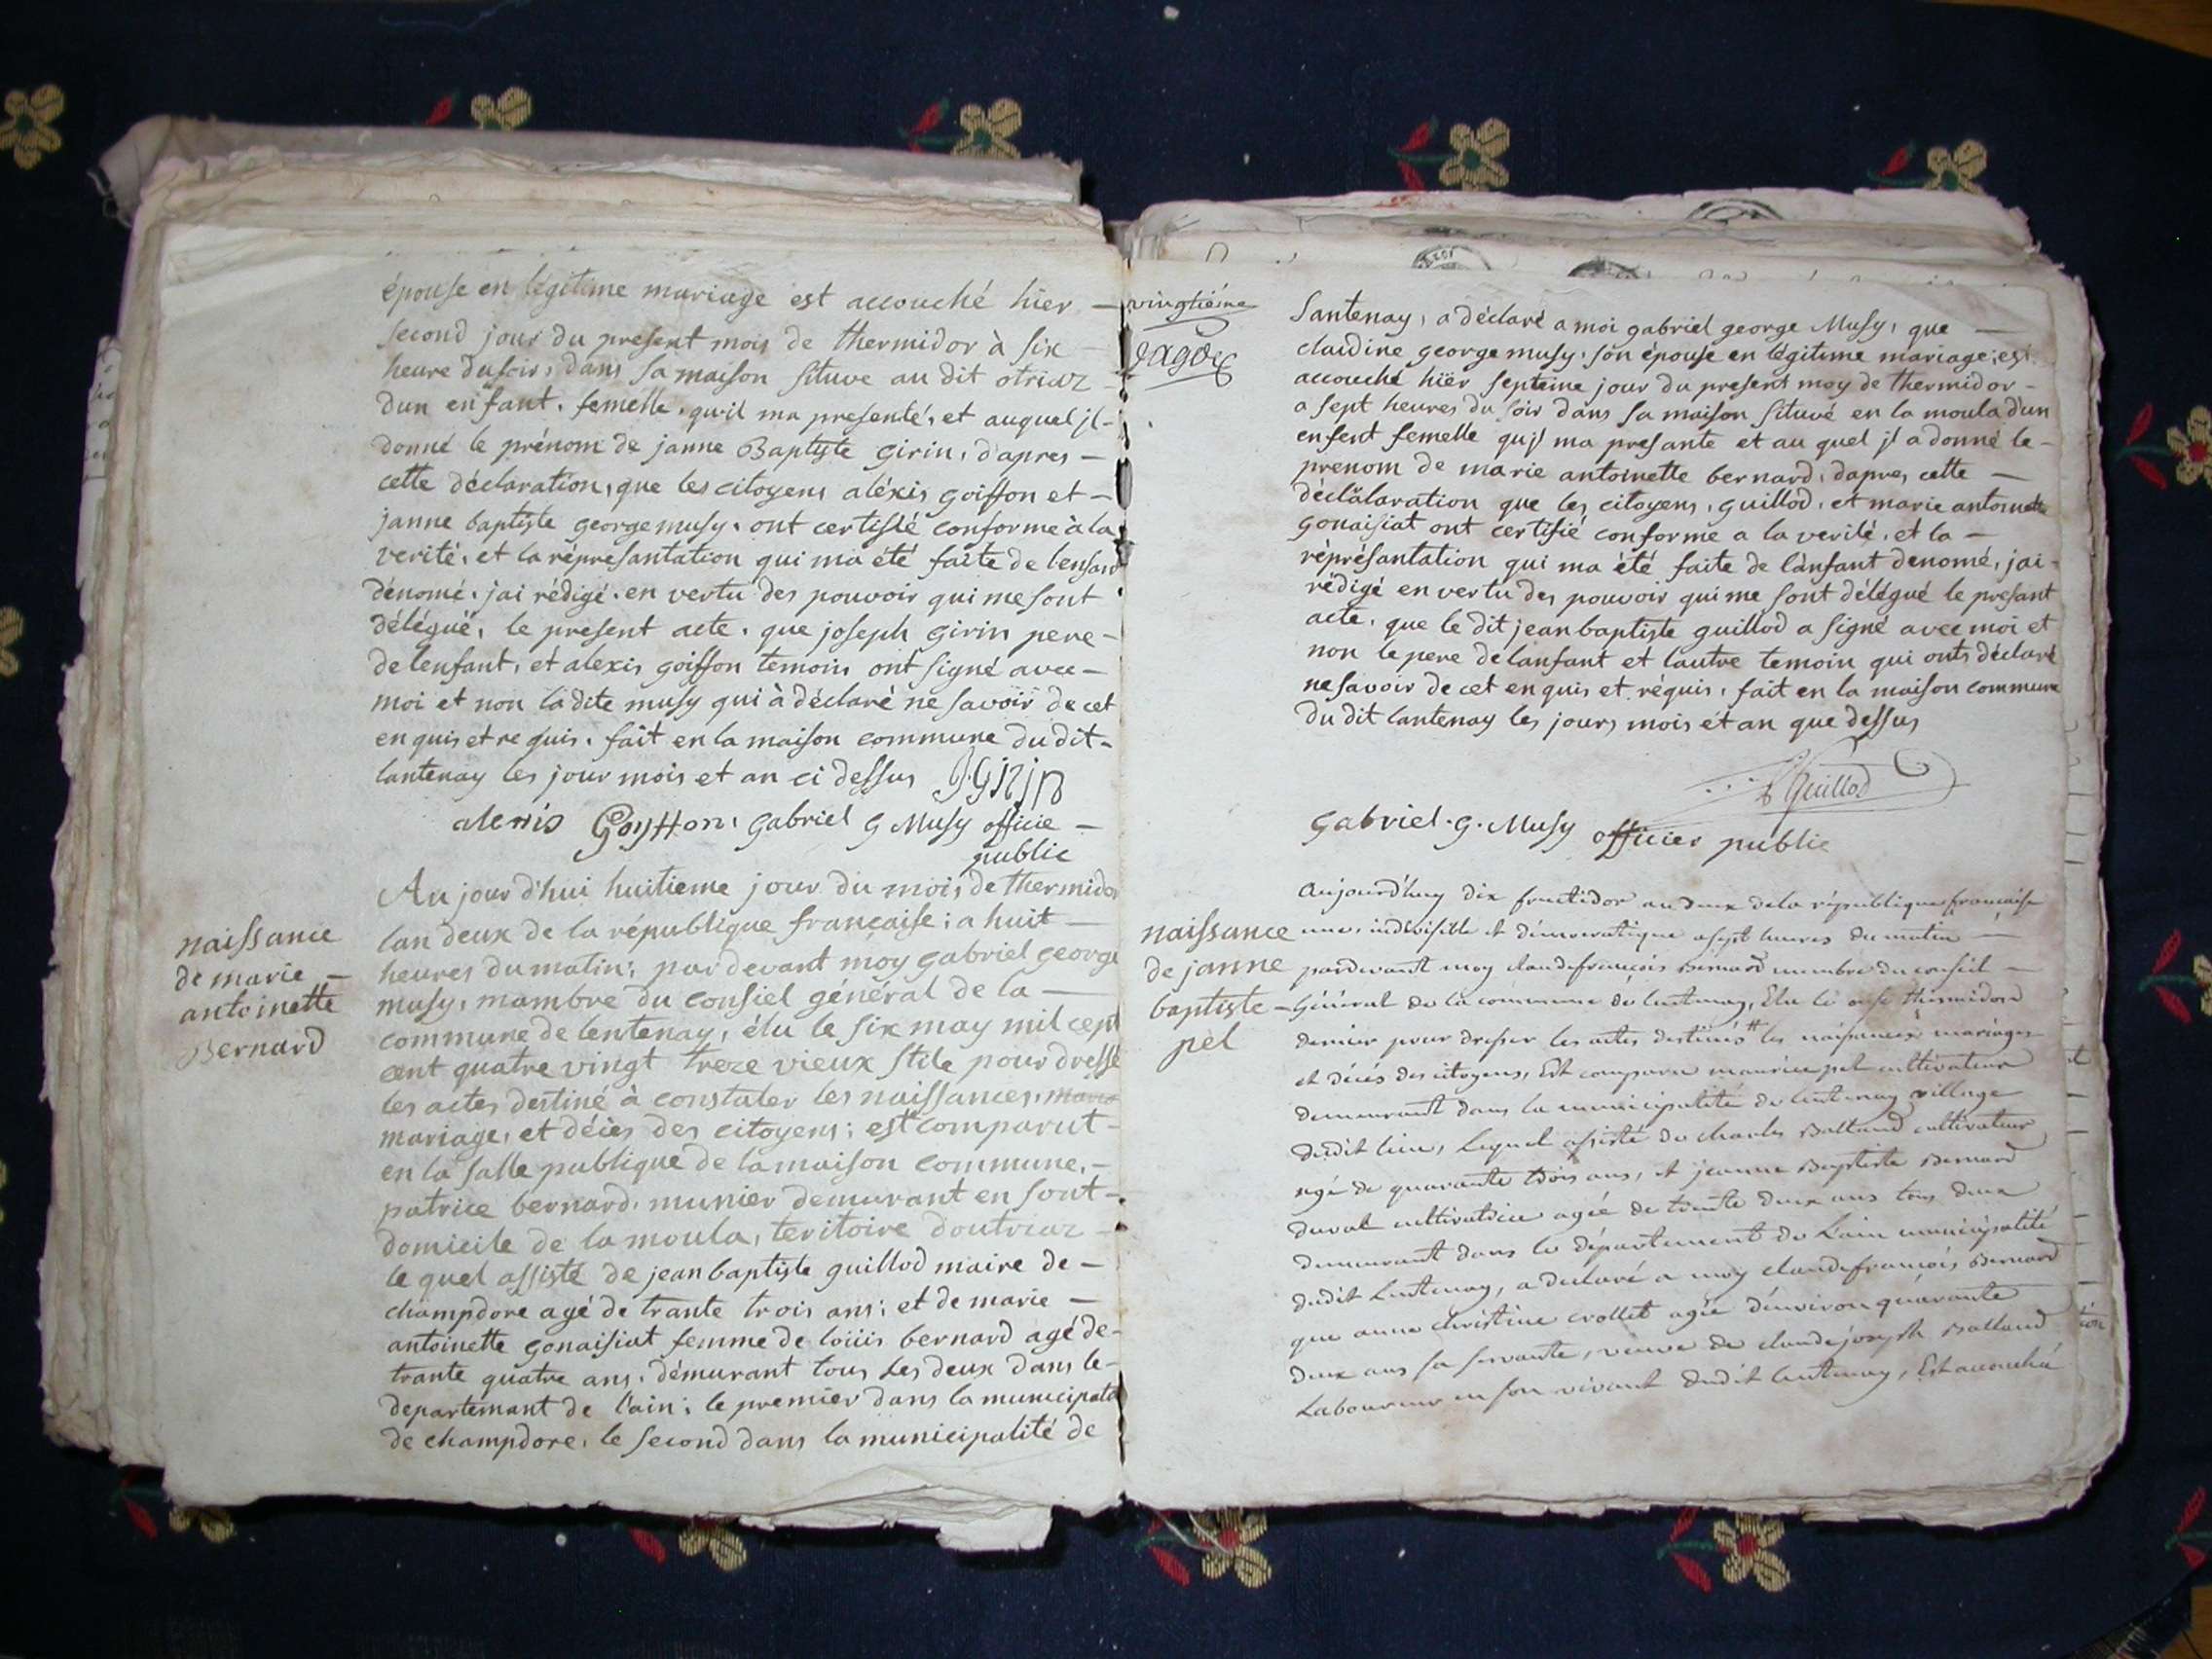 épouse en légitime mariage est accouché hier —
second jour du present mois de thermidor à six
heure du soir, dans sa maison situve au dit otriaz
dun enfant, femelle, qu'il ma presenté, et auquel jl —
donné le prénom de janne Baptiste Girin, dapres —
cette déclaration, que les citoyens aléxis goiffon et —
janne baptiste george musy, ont certifié conforme à la
verité, et la répresantation qui ma été faite de lenfant
dénomé, jai rédigé, en vertu des pouvoir qui me sont
délégué, le present acte, que joseph Girin pere —
de lenfant, et alexis goiffon temoins ont signé avec —
moi et non la dite musy qui à déclaré ne savoir de cet
en quis et re quis, fait en la maison commune du dit —
lantenay les jour mois et an ci dessus J. Girin
alexis Goyffon, Gabriel G Musy officie —
public
naissance
de marie —
antoinette
Bernard
Au jour d'hui huitieme jour du mois de thermidor
lan deux de la république francaise; a huit —
heures du matin; par devant moy Gabriel George
musy, mambre du consiel général de la —
commune de lentenay, élu le six may mil cept
cent quatre vingt treze vieux stile pour dressé
les actes destiné à constater les naissances,
mariage, et décès des citoyens; est comparut —
en la salle publique de la maison commune, —
patrice bernard, munier demurant en sont —
domicile de la moula, teritoire doutriaz —
le quel assisté de jean baptiste guillod maire de —
champdore agé de trante trois ans; et de marie —
antoinette gonaisiat femme de loüis bernard agé de —
trante quatre ans, démurant tous les deux dans le —
departemant de l'ain; le premier dans la municipalité
de champdore, le second dans la municipalité de
vingtième
Santenay, a déclaré a moi gabriel george Musy, que —
claudine george musy, son épouse en légitime mariage, est
accouché hier septeine jour du present moy de thermidor —
a sept heures du soir dans sa maison situvé en la moula d'un
enfent femelle qujl ma presante et au quel jl a donné le —
prenom de marie antoinette bernard, dapres cette —
déclälaration que les citoyens, guillod, et marie antoinette
gonaisiat ont certifié conforme a la verité, et la —
réprésantation qui ma été faite de lànfant denomé, jai —
rédigé en vertu des pouvoir qui me sont délégué le presant
acte, que le dit jean baptiste guillod a signé avec moi et
non le pere de lanfant et lautre temoin qui onts déclaré
ne savoir de cet en quis et réquis, fait en la maison commune
du dit lantenay les jours mois et an que dessus
Guillod
Gabriel. G. Musy officier public
naissance
de janne
baptiste —
pel
aujourd'huy dix fructidor an deux de la république francaise
une, indivisible et démocratique a sept heures du matin —
pardevant moy claude françois Bernard membre du conseil —
Général de la commune de lentenay, Elu le onse thermidord
dernier pour dresser les actes destinés # les naissances mariages
et décés des citoyens, Est comparu maurice pel cultivateur
demeurant dans la municipalité de lentenay village
dudit lieu, lequel assisté de charles Balland cultivateur
agé de quarante trois ans, et jeanne Baptiste Bernard
duval cultivatrice agée de trente deux ans tous deux
demeurant dans le département de Lain municipalité
dudit Lentenay, a declaré a moy claude françois Bernard
que anne christine crollet agée d'environ quarante
deux ans sa servante, veuve de claude joseph Balland
Laboureur en son vivant dudit lentenay, Est accouchée